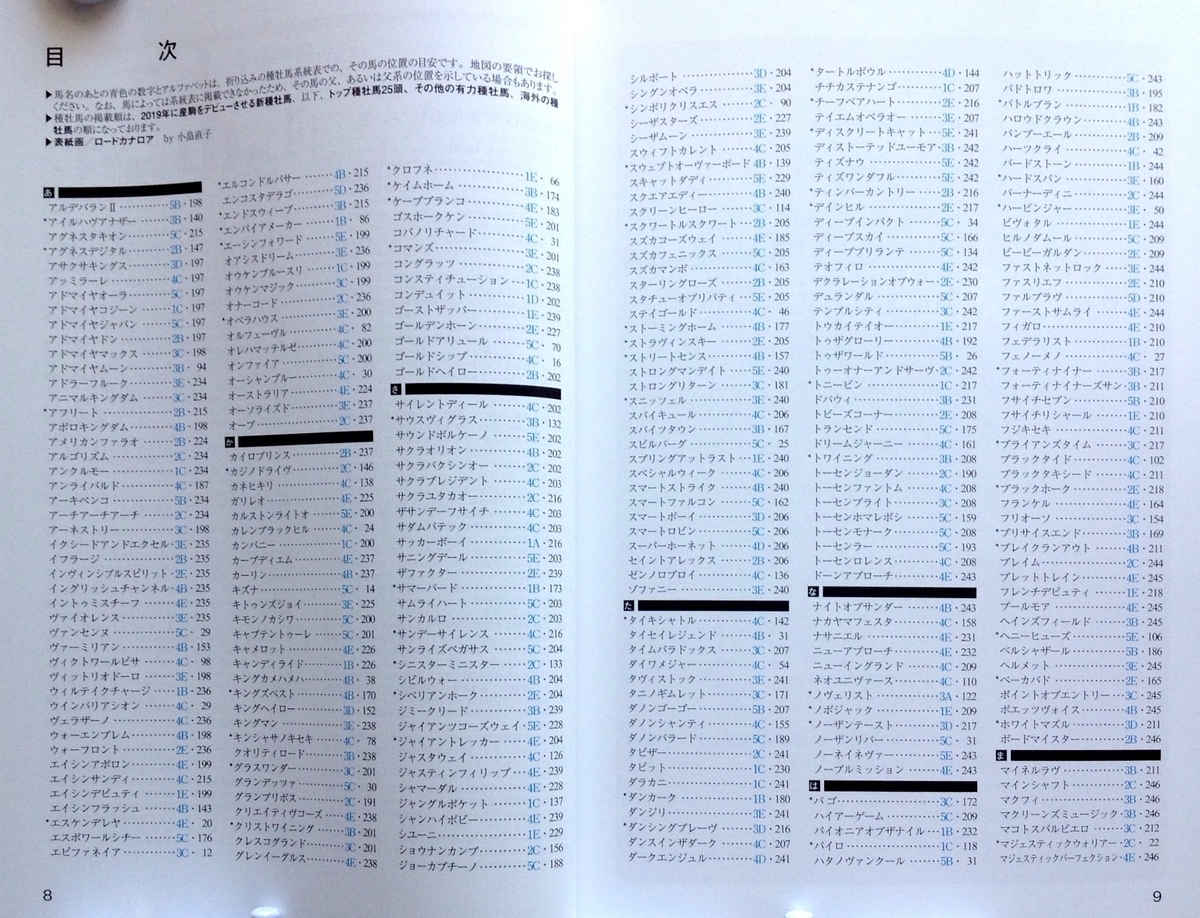 目　次
▶馬名のあとの青色の数字とアルファベットは、折り込みの種牡馬系統表での、その馬の位置の目安です。地図の要領でお探し
ください。なお、馬によっては系統表に掲載できなかったため、その馬の父、あるいは父系の位置を示している場合もあります。
▶種牡馬の掲載順は、2019年に産駒をデビューさせる新種牡馬、以下、トップ種牡馬25頭、その他の有力種牡馬、海外の種
牡馬の順になっております。
▶表紙画／ロードカナロア by 小畠直子
あ
アルデバランⅡ 5B・198
*アイルハヴアナザー 3B・140
アグネスタキオン 5C・215
*アグネスデジタル 2B・147
アサクサキングス 3D・197
アッミラーレ 4C・197
アドマイヤオーラ 5C・197
アドマイヤコジーン 1C・197
アドマイヤジャパン 5C・197
アドマイヤドン 2B・197
アドマイヤマックス 3C・198
アドマイヤムーン 3B・94
アドラーフルーク 3E・234
アニマルキングダム 3C・234
*アフリート 2B・215
アポロキングダム 4B・198
アメリカンファラオ 2B・224
アルゴリズム 2C・234
アンクルモー 1C・234
アンライバルド 4C・187
アーキペンコ 5B・234
アーチアーチアーチ 2C・234
アーネストリー 3C・198
イクシードアンドエクセル 3E・235
イフラージ 2B・235
インヴィンシブルスピリット 2E・235
イングリッシュチャンネル 4B・235
イントゥミスチーフ 4E・235
ヴァイオレンス 3E・235
ヴァンセンヌ 5C・29
ヴァーミリアン 4B・153
ヴィクトワールピサ 4C・98
ヴィットリオドーロ 3E・198
ウィルテイクチャージ 1B・236
ウインバリアシオン 4C・29
ヴェラザーノ 4C・236
ウォーエンブレム 4B・198
ウォーフロント 2E・236
エイシンアポロン 4E・199
エイシンサンディ 4C・215
エイシンデピュティ 1E・199
エイシンフラッシュ 4B・143
*エスケンデレヤ 4E・20
エスポワールシチー 5C・176
エピファネイア 3C・12
*エルコンドルパサー 4B・215
エンコスタデラゴ 5D・236
*エンドスウィープ 3B・215
*エンパイアメーカー 1B・86
*エーシンフォワード 5E・199
オアシスドリーム 3E・236
オウケンブルースリ 1C・199
オウケンマジック 3C・199
オナーコード 2C・236
*オペラハウス 3E・200
オルフェーヴル 4C・82
オレハマッテルゼ 4C・200
オンファイア 5C・200
オーシャンブルー 4C・30
オーストラリア 4E・224
オーソライズド 3E・237
オーブ 2C・237
か
カイロプリンス 2B・237
*カジノドライヴ 2C・146
カネヒキリ 4C・138
ガリレオ 4E・225
カルストンライトオ 5E・200
カレンブラックヒル 4C・24
カンパニー 1C・200
カープディエム 4E・237
カーリン 4B・237
キズナ 5C・14
キトゥンズジョイ 3E・225
キモンノカシワ 5C・200
キャプテントゥーレ 5C・201
キャメロット 4E・226
キャンディライド 1B・226
キングカメハメハ 4B・38
*キングズベスト 4B・170
キングヘイロー 3D・152
キングマン 3E・238
*キンシャサノキセキ 4C・78
クオリティロード 3B・238
*グラスワンダー 3C・201
グランデッツァ 5C・30
グランプリボス 2C・191
クリエイティヴコーズ 4E・238
*クリストワイニング 3B・201
クレスコグランド 3C・201
グレンイーグルス 4E・238
*クロフネ 1E・66
*ケイムホーム 3B・174
*ケープブランコ 4E・183
ゴスホークケン 5E・201
コパノリチャード 4C・31
*コマンズ 3E・201
コングラッツ 2C・238
コンスティチューション 1C・238
コンデュイット 1D・202
ゴーストザッパー 1E・239
ゴールデンホーン 2E・227
ゴールドアリュール 5C・70
ゴールドシップ 4C・16
ゴールドヘイロー 2B・202
さ
サイレントディール 4C・202
*サウスヴィグラス 3B・132
サウンドボルケーノ 5E・202
サクラオリオン 4B・202
サクラバクシンオー 2C・202
サクラプレジデント 4C・203
サクラユタカオー 2C・216
ザサンデーフサイチ 4C・203
サダムパテック 4C・203
サッカーボーイ 1A・216
サニングデール 5E・203
ザファクター 2E・239
*サマーバード 1B・173
サムライハート 5C・203
サンカルロ 2C・203
*サンデーサイレンス 4C・216
サンライズペガサス 5C・204
*シニスターミニスター 2C・133
シビルウォー 4B・204
*シベリアンホーク 2E・204
ジミークリード 3B・239
ジャイアンツコーズウェイ 5E・228
*ジャイアントレッカー 4E・204
ジャスタウェイ 4C・126
ジャスティンフィリップ 4E・239
シャマーダル 4E・228
ジャングルポケット 1C・137
シャンハイボビー 4E・239
シユーニ 1E・229
ショウナンカンプ 2C・156
ジョーカプチーノ 5C・188
シルポート 3D・204
シングンオペラ 3E・204
*シンボリクリスエス 2C・90
シーザスターズ 2E・227
シーザムーン 3E・239
スウィフトカレント 4C・205
*スウェプトオーヴァーボード 4B・139
スキャットダディ 5E・229
スクエアエディー 4B・240
スクリーンヒーロー 3C・114
*スクワートルスクワート 2B・205
スズカコーズウェイ 4E・185
スズカフェニックス 5C・205
スズカマンボ 4C・163
スターリングローズ 2B・205
スタチューオブリバティ 5E・205
ステイゴールド 4C・46
*ストーミングホーム 4B・177
*ストラヴィンスキー 2E・205
*ストリートセンス 4B・157
ストロングマンデイト 5E・240
ストロングリターン 3C・181
*スニッツェル 3E・240
スパイキュール 4C・206
スパイツタウン 3B・167
スピルバーグ 5C・25
スプリングアットラスト 1E・240
スペシャルウィーク 4C・206
スマートストライク 4B・240
スマートファルコン 5C・162
スマートボーイ 3D・206
スマートロビン 5C・206
スーパーホーネット 4D・206
セイントアレックス 2B・206
ゼンノロブロイ 4C・136
ゾファニー 3E・240
た
*タイキシャトル 4C・142
タイセイレジェンド 4B・31
タイムパラドックス 3C・207
ダイワメジャー 4C・54
タヴィストック 3E・241
タニノギムレット 3C・171
ダノンゴーゴー 5B・207
ダノンシャンティ 4C・155
ダノンバラード 5C・189
タピザー 2C・241
タピット 1C・230
ダラカニ 1C・241
*ダンカーク 1B・180
ダンジリ 3E・241
*ダンシングブレーヴ 3D・216
ダンスインザダーク 4C・207
ダークエンジェル 4D・241
*タートルボウル 4D・144
チチカステナンゴ 1C・207
*チーフベアハート 2E・216
テイエムオペラオー 3E・207
*ディスクリートキャット 5E・241
ディストーテッドユーモア 3B・242
ティズナウ 5E・242
ティズワンダフル 5E・242
*ティンバーカントリー 2B・216
*デインヒル 2E・217
ディープインパクト 5C・34
ディープスカイ 5C・166
ディープブリランテ 5C・134
テオフィロ 4E・242
デクラレーションオブウォー 2E・230
デュランダル 5C・207
テンプルシティ 3C・242
トウカイテイオー 1E・217
トゥザグローリー 4B・192
トゥザワールド 5B・26
トゥーオナーアンドサーヴ 2C・242
*トニービン 1C・217
ドバウィ 3B・231
トビーズコーナー 2E・208
トランセンド 5C・175
ドリームジャーニー 4C・161
*トワイニング 3B・208
トーセンジョーダン 2C・190
トーセンファントム 4C・208
トーセンブライト 3C・208
トーセンホマレボシ 5C・159
トーセンモナーク 5C・208
トーセンラー 5C・193
トーセンロレンス 4C・208
ドーンアプローチ 4E・243
な
ナイトオブサンダー 4B・243
ナカヤマフェスタ 4C・158
ナサニエル 4E・231
ニューアプローチ 4E・232
ニューイングランド 4C・209
ネオユニヴァース 4C・110
*ノヴェリスト 3A・122
*ノボジャック 1E・209
*ノーザンテースト 3D・217
ノーザンリバー 5C・31
ノーネイネヴァー 5E・243
ノーブルミッション 4E・243
は
*バゴ 3C・172
ハイアーゲーム 5C・209
パイオニアオブザナイル 1B・232
*パイロ 1C・118
ハタノヴァンクール 5B・31
ハットトリック 5C・243
パドトロワ 3B・195
*バトルプラン 1B・182
ハロウドクラウン 4B・243
バンブーエール 2B・209
ハーツクライ 4C・42
バードストーン 1B・244
*ハードスパン 3E・160
バーナーディニ 2C・244
*ハービンジャー 3E・50
ピヴォタル 1E・244
ヒルノダムール 5C・209
ビービーガルダン 2E・209
ファストネットロック 3E・244
ファスリエフ 2E・210
ファルブラヴ 5D・210
ファーストサムライ 4E・244
フィガロ 4E・210
フェデラリスト 1B・210
フェノーメノ 4C・27
*フォーティナイナー 3B・217
*フォーティナイナーズサン 3B・211
フサイチセブン 5B・210
フサイチリシャール 1E・210
フジキセキ 4C・211
*ブライアンズタイム 3C・217
ブラックタイド 4C・102
ブラックタキシード 4C・211
*ブラックホーク 2E・218
フランケル 4E・164
フリオーソ 3C・154
*プリサイスエンド 3B・169
*ブレイクランアウト 4B・211
ブレイム 2C・244
ブレットトレイン 4E・245
フレンチデピュティ 1E・218
プールモア 4E・245
ヘインズフィールド 3B・245
*ヘニーヒューズ 5E・106
ベルシャザール 5B・186
ヘルメット 3E・245
*ベーカバド 2E・165
ポイントオブエントリー 3C・245
ポエッツヴォイス 4B・245
*ホワイトマズル 3D・211
ボードマイスター 2B・246
ま
マイネルラヴ 3B・211
マインシャフト 2C・246
マクフィ 3B・246
マクリーンズミュージック 3B・246
マコトスパルビエロ 3C・212
*マジェスティックウォリアー 2C・22
マジェスティックパーフェクション 4E・246
8
9